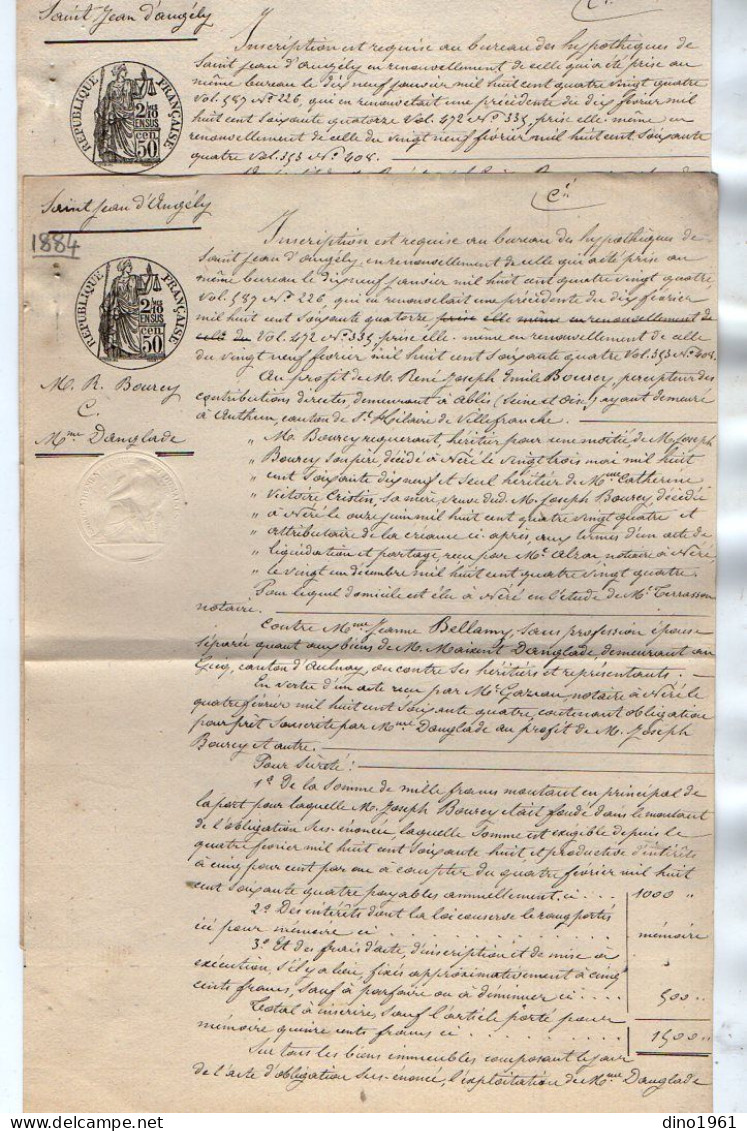 Saint Jean d'angély
Cn
Inscription est requise au bureau des hypothèques de
Saint Jean d'Angély en renouvellement de celle qui a été prise au
même bureau le dix neuf janvier mil huit cent quatre vingt quatre
Vol. 587 No. 226, qui en renouvelait une précédente du dix février mil
huit cent soixante quatorze Vol. 472 No. 335, prise elle même en
renouvellement de celle du vingt neuf février mil huit cent soixante
quatre Vol. 353 No. 408.
RÉPUBLIQUE FRANÇAISE
2/10 EN SUS
50 cen.
Saint Jean d'Angély
Cn
1884
RÉPUBLIQUE FRANÇAISE
2/10 EN SUS
50 cen.
M. R. Bourcy
C.
Mme Danglade
Inscription est requise au bureau des hypothèques de
Saint Jean d'Angély en renouvellement de celle qui a été prise au
même bureau le dix neuf janvier mil huit cent quatre vingt quatre
Vol. 587 No. 226, qui en renouvelait une précédente du dix février
mil huit cent soixante quatorze prise elle même en renouvellement de
celle du Vol. 472 No. 335, prise elle-même en renouvellement de celle
du vingt neuf février mil huit cent soixante quatre Vol. 353 No. 408.
Au profit de M. René Joseph Emile Bourcy, percepteur des
contributions directes, demeurant à Ablis (Seine et Oise) ayant demeuré
à Authon, canton de St. Hilaire de Villefranche.
" M. Bourcy requérant, héritier pour une moitié de M. Joseph
" Bourcy son père décédé à Néré le vingt trois mai mil huit
" cent soixante dix neuf et seul héritier de Mme Catherine
" Victoire Cristin, sa mère, veuve dud. M. Joseph Bourcy décédée
" à Néré le onze juin mil huit cent quatre vingt quatre et
" attributaire de la créance ci-après, aux termes d'un acte de
" liquidation et partage, reçu par Me. notaire à Néré,
" le vingt un décembre mil huit cent quatre vingt quatre.
Pour lequel domicile est élu à Néré en l'étude de Me. Terrasson
notaire.
Contre Mme Jeanne Bellamy, sans profession épouse
séparée quant aux biens de M. Maixent Danglade, demeurant au
Gicq, canton d'Aulnay, ou contre ses héritiers et représentants.
En vertu d'un acte reçu par Me. notaire à Néré le
quatre février mil huit cent soixante quatre, contenant obligation
pour prêt souscrite par Mme Danglade au profit de M. Joseph
Bourcy et autre.
Pour Sûreté :
1o. De la somme de mille francs montant en principal de
la part pour laquelle M. Joseph Bourcy était fondé dans le montant
de l'obligation sus-énoncée, laquelle somme est exigible depuis le
quatre février mil huit cent soixante huit et productive d'intérêts
à cinq pour cent par an à compter du quatre février mil huit
cent soixante quatre payables annuellement, ci .... 1000 "
2o. Des intérêts dont la loi conserve le rang portés
ici pour mémoire ci .......... mémoire
3o. Et des frais d'acte, d'inscription et de mise à
exécution, s'il y a lieu, fixés approximativement à cinq
cents francs, sauf à parfaire ou à diminuer ci .... 500 "
Total à inscrire, sauf l'article porté pour
mémoire quinze cents francs ci .......... 1500 "
Sur tous les biens immeubles composant le jour
de l'acte d'obligation sus-énoncé, l'exploitation de Mme Danglade
dino1961